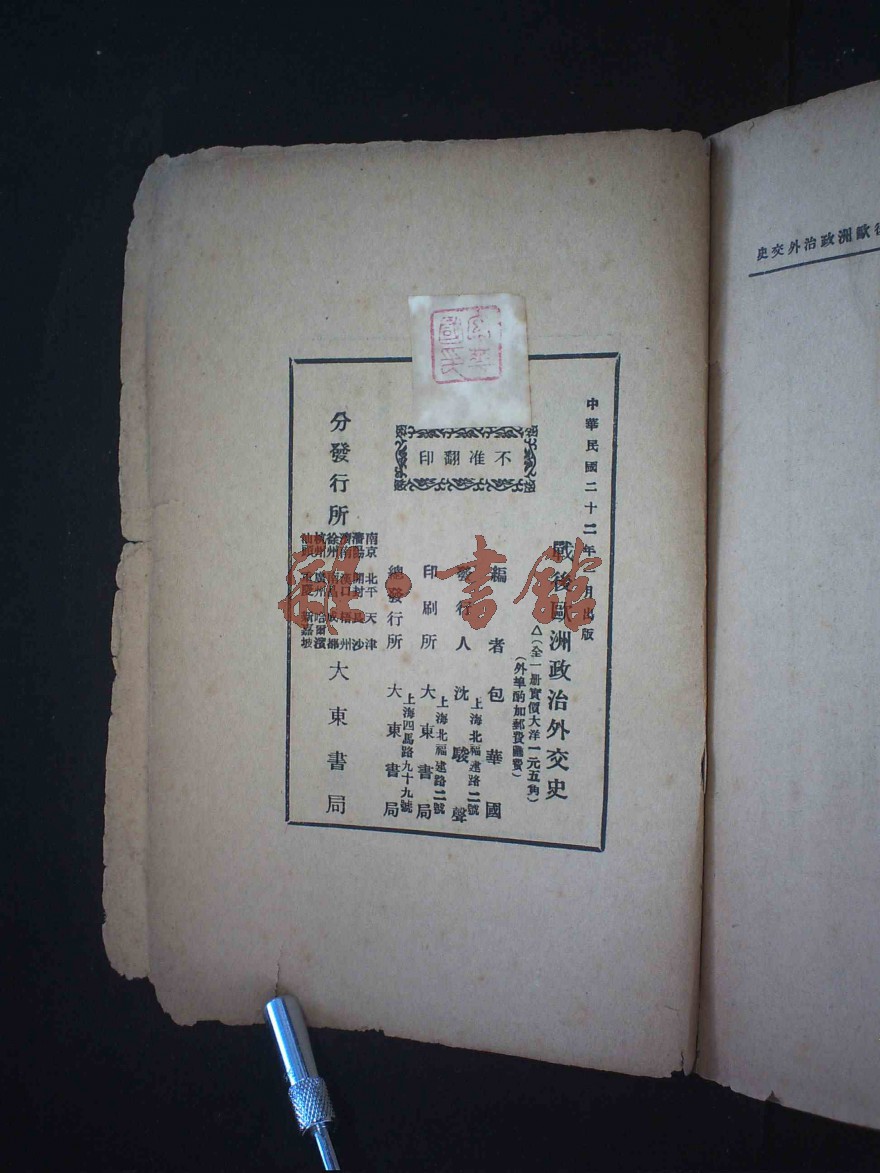 後歐洲政治外交史
中華民國二十二年三月出版
戰後歐洲政治外交史
△(全一册實價大洋一元五角)
(外埠酌加郵費匯費)
編者 包華國
發行人 沈駿聲
上海北福建路二號
印刷所 大東書局
上海北福建路二號
總發行所 大東書局
上海四馬路九十九號
不准翻印
分發行所
南京 北平 天津
瀋陽 開封 長沙
濟南 漢口 梧州
徐州 南昌 成都
杭州 廣州 哈爾濱
汕頭 重慶 新嘉坡
大東書局
雜·書館